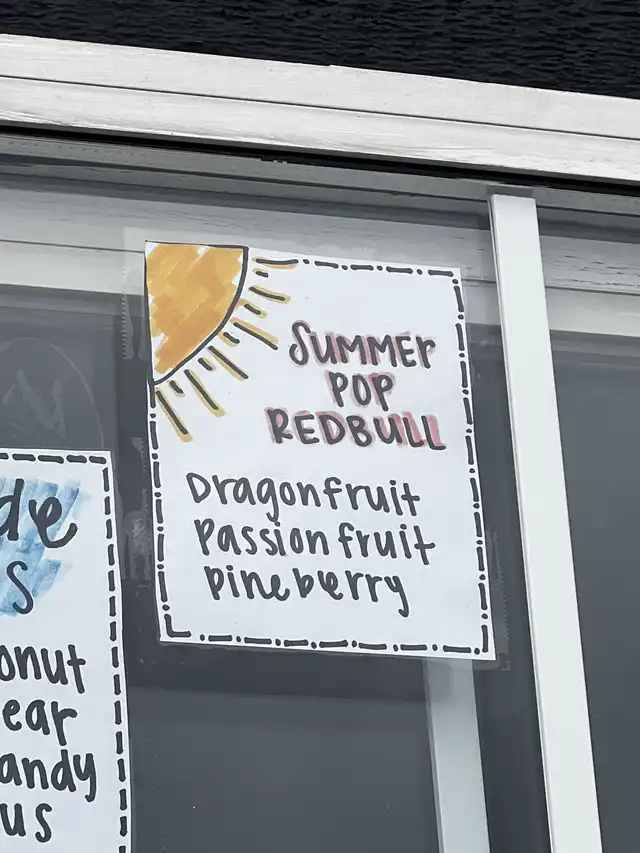 SUMMER
POP
REDBULL
Dragonfruit
Passion fruit
pineberry
de
s
onut
ear
andy
us